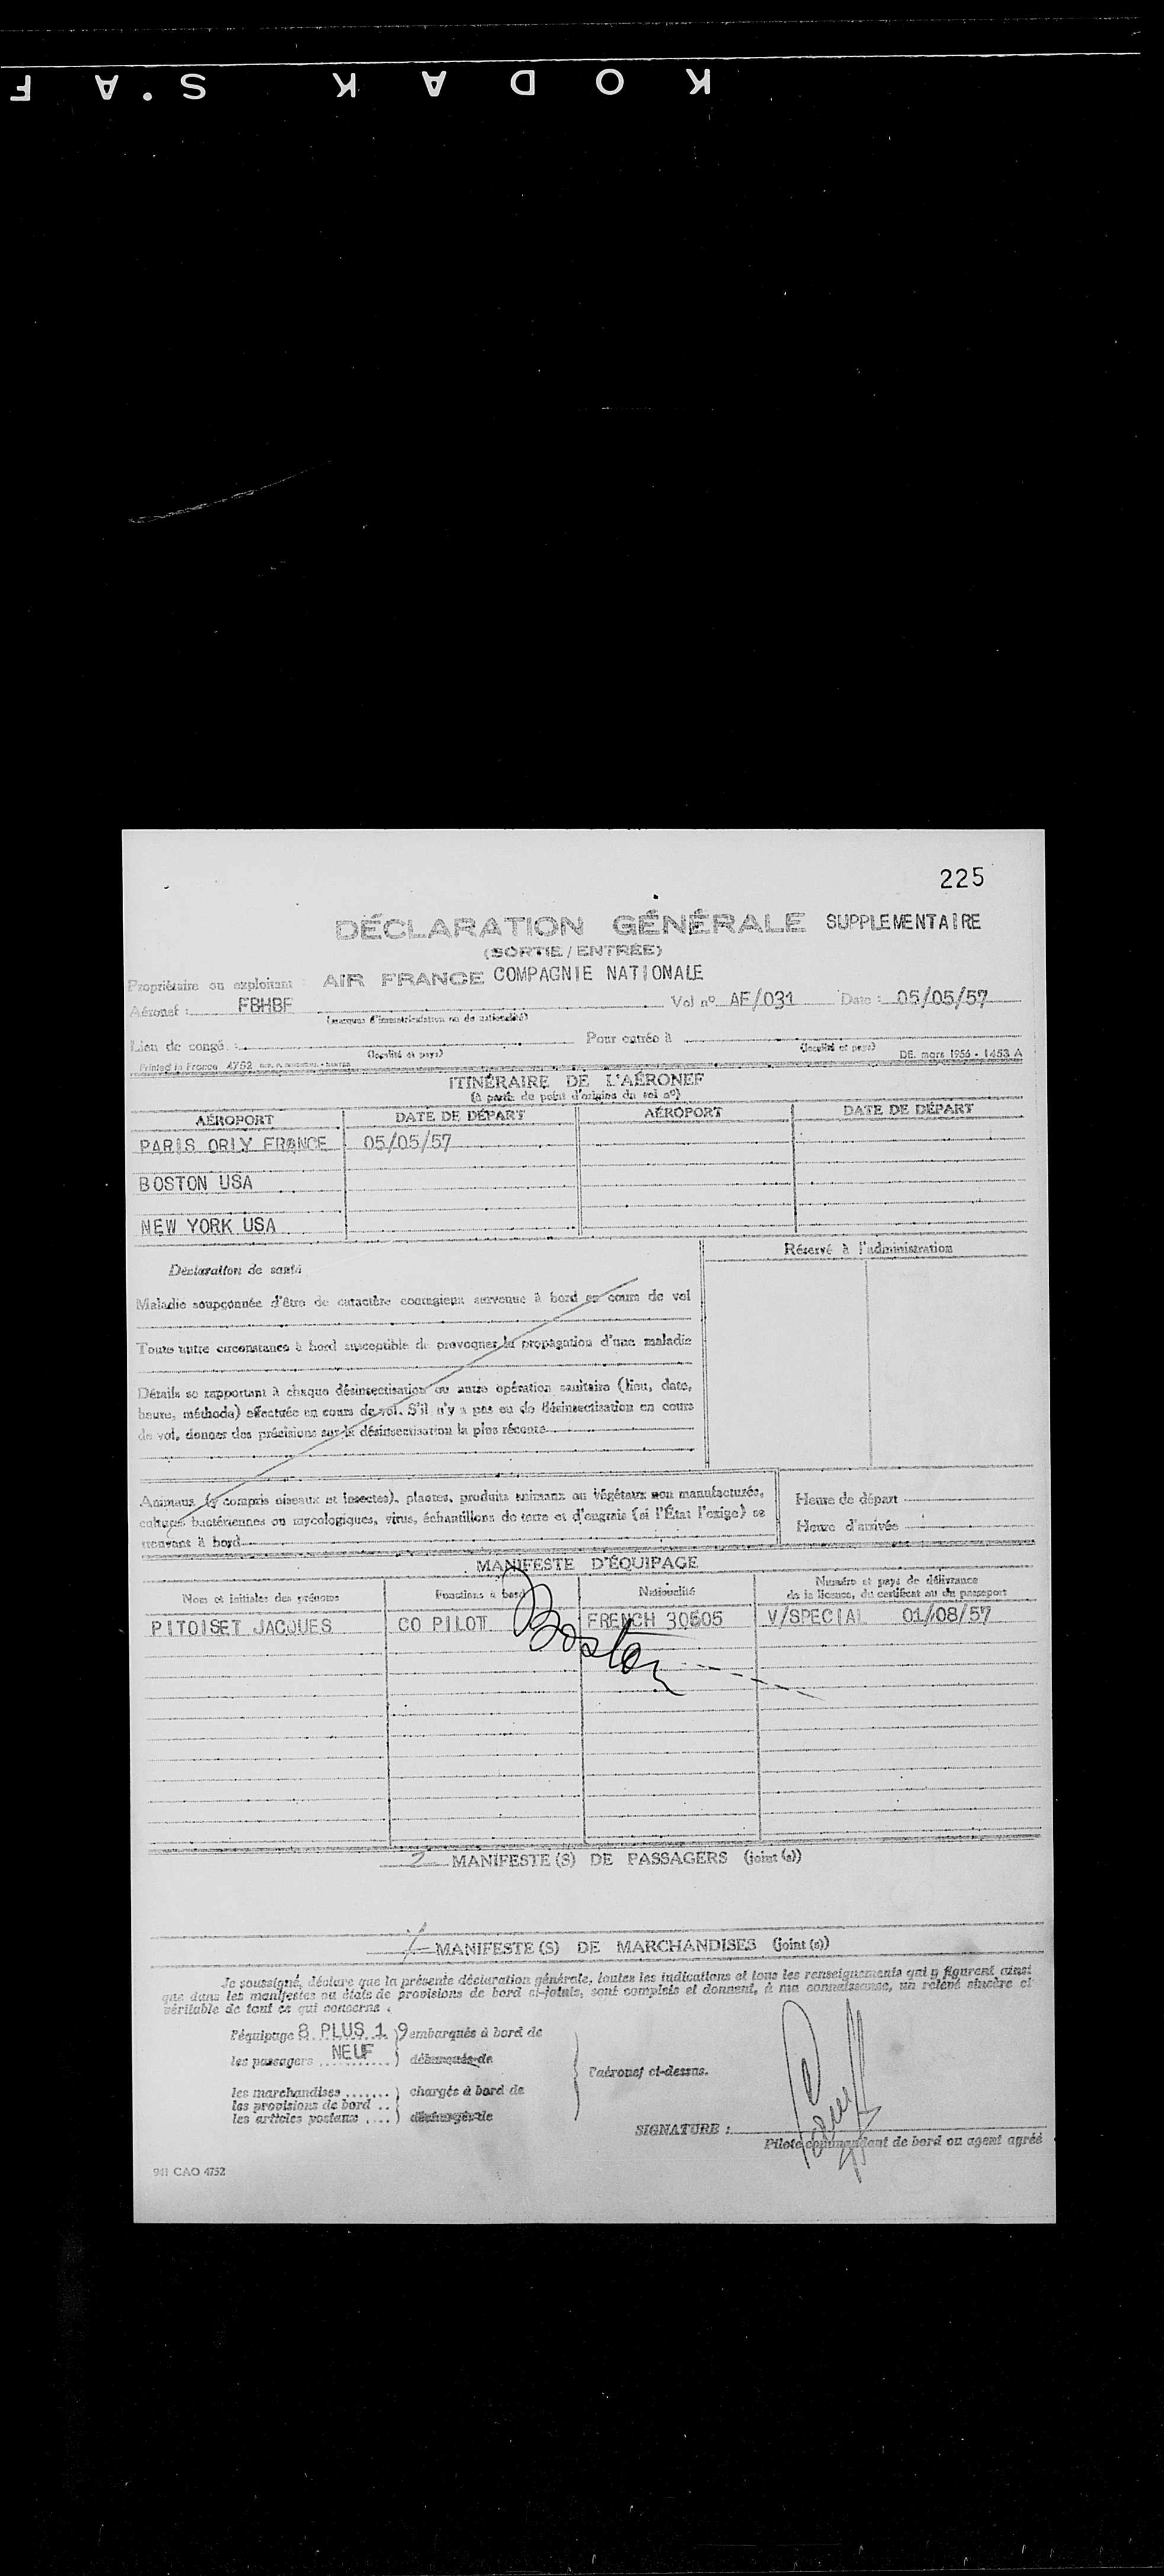 KODAK S.A F
225
DÉCLARATION GÉNÉRALE SUPPLEMENTAIRE
(SORTIE / ENTRÉE)
Propriétaire ou exploitant : AIR FRANCE COMPAGNIE NATIONALE
Aéronef : FBHBF Vol nº AF/031 Date : 05/05/57
(marques d'immatriculation ou de nationalité)
Lieu de congé : Pour entrée à
(localité et pays) (localité et pays)
Printed in France 4752 DE. mars 1956 - 1453 A
ITINÉRAIRE DE L'AÉRONEF
(à partir du point d'origine du vol nº)
AÉROPORT DATE DE DÉPART AÉROPORT DATE DE DÉPART
PARIS ORLY FRANCE 05/05/57
BOSTON USA
NEW YORK USA
Réservé à l'administration
Déclaration de santé
Maladie soupçonnée d'être de caractère contagieux survenue à bord en cours de vol
Toute autre circonstance à bord susceptible de provoquer la propagation d'une maladie
Détails se rapportant à chaque désinsectisation ou autre opération sanitaire (lieu, date,
heure, méthode) effectuée en cours de vol. S'il n'y a pas eu de désinsectisation en cours
de vol, donner des précisions sur la désinsectisation la plus récente
Animaux (y compris oiseaux et insectes), plantes, produits animaux ou végétaux non manufacturés,
cultures bactériennes ou mycologiques, virus, échantillons de terre et d'engrais (si l'État l'exige) se
trouvant à bord
Heure de départ
Heure d'arrivée
MANIFESTE D'ÉQUIPAGE
Nom et initiales des prénoms Fonctions à bord Nationalité Numéro et pays de délivrance
de la licence, du certificat ou du passeport
PITOISET JACQUES CO PILOT FRENCH 30605 V/SPECIAL 01/08/57
Boston
2 MANIFESTE(S) DE PASSAGERS (joint(s))
1 MANIFESTE(S) DE MARCHANDISES (joint(s))
Je soussigné, déclare que la présente déclaration générale, toutes les indications et tous les renseignements qui y figurent ainsi
que dans les manifestes ou états de provisions de bord ci-joints, sont complets et donnent, à ma connaissance, un relevé sincère et
véritable de tout ce qui concerne :
l'équipage 8 PLUS 1 9 embarqués à bord de
les passagers NEUF débarqués de
l'aéronef ci-dessus.
les marchandises ....... chargés à bord de
les provisions de bord ..
les articles postaux .... déchargés de
SIGNATURE :
Pilote commandant de bord ou agent agréé
941 CAO 4752